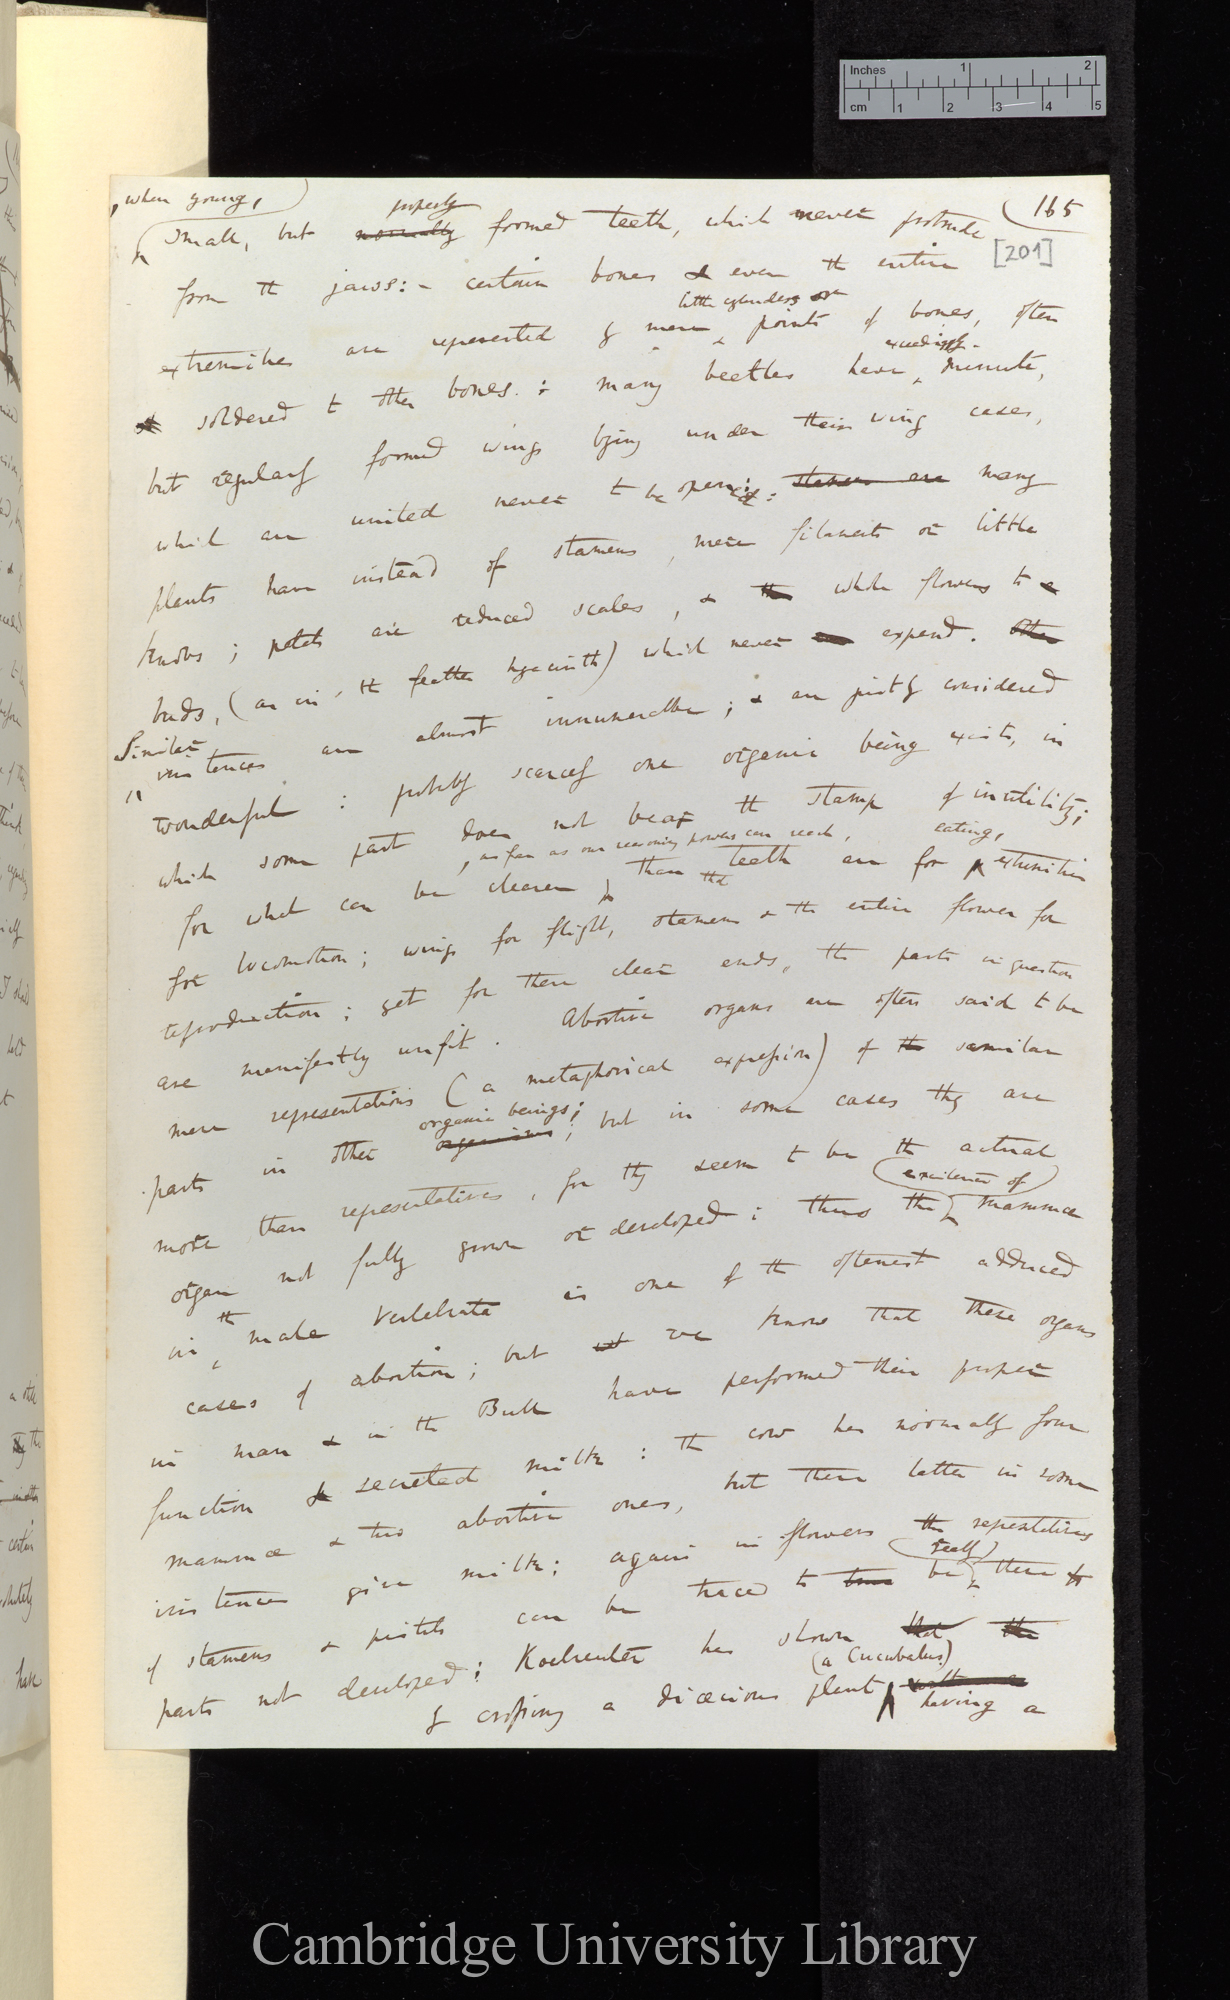 Inches 1 2
cm 1 2 3 4 5
165
[201]
, when young,
properly
small, but normally formed teeth, which never protrude
from the jaws:- certain bones & even the entire
little cylinders or
extremities are represented by mere points of bones, often
exceedingly
soldered to other bones: many beetles have minute,
but regularly formed wings lying under their wing cases,
which are united never to be opened: stamens are many
plants have instead of stamens, mere filaments or little
knobs; petals are reduced scales, & the whole flowers to
buds, (as in the feather hyacinth) which never expand.
Similar
instances are almost innumerable; & are justly considered
wonderful: probably scarcely one organic being exists, in
which some part does not bear the stamp of inutility;
, as far as our reasoning powers can reach, eating,
for what can be clearer than that teeth are for extremities
for locomotion; wings for flight, stamens & the entire flower for
reproduction; yet for these clear ends, the parts in question
are manifestly unfit. Abortive organs are often said to be
mere representatives (a metaphorical expression) of the similar
organic beings;
parts in other organisms; but in some cases they are
more than representatives, for they seem to be the actual
existence of
organ not fully grown or developed; thus the mammæ
the
in male vertebrata is one of the oftenest adduced
cases of abortion; but we know that these organs
in man & in the Bull have performed their proper
function & secreted milk: the cow has normally four
mammæ & two abortive ones, but these latter in some
instances give milk; again in flowers the representatives
really
of stamens & pistils can be traced to be these
parts not developed; Koelreuter has shown that the
(a Cucubalus)
by crossing a diœcious plant having a
Cambridge University Library